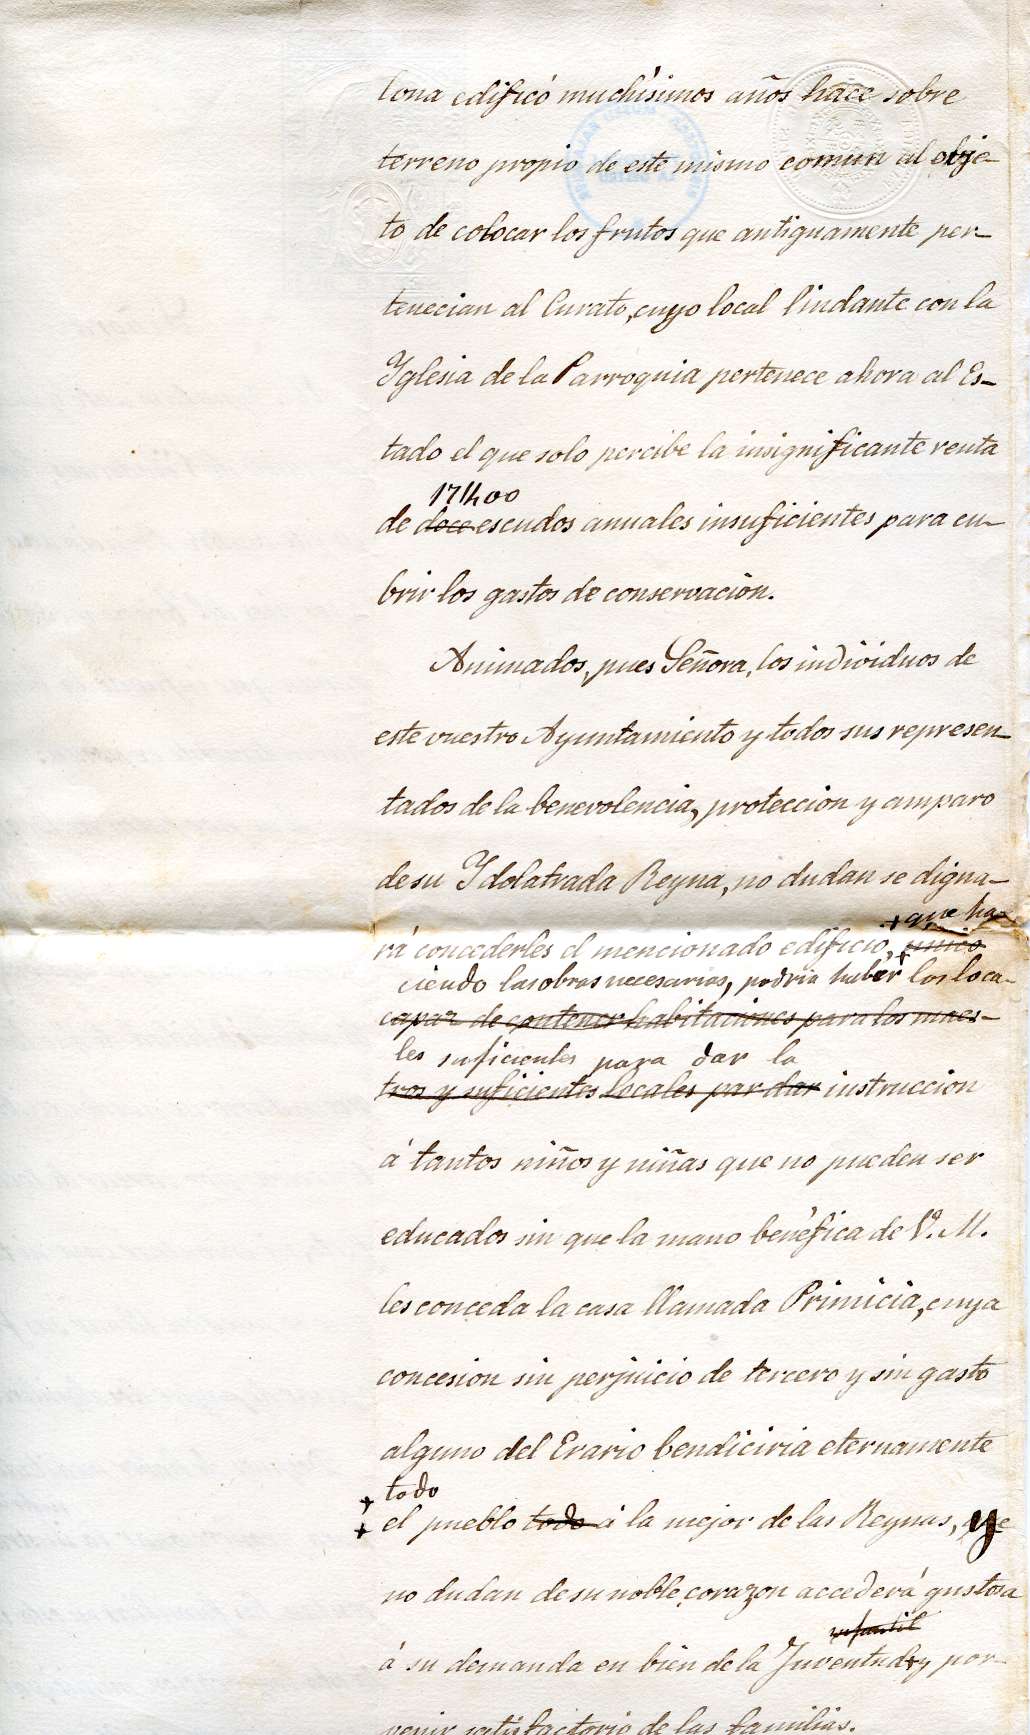 lona edificó muchísimos años hace sobre
terreno propio de este mismo comun al obje-
to de colocar los frutos que antiguamente per-
tenecian al Curato, cuyo local lindante con la
Yglesia de la Parroquia pertenece ahora al Es-
tado el que solo percibe la insignificante renta
17'400
de doce escudos anuales insuficientes para cu-
brir los gastos de conservación.
Animados, pues Señora, los individuos de
este vuestro Ayuntamiento y todos sus represen-
tados de la benevolencia, proteccion y amparo
de su Ydolatrada Reyna, no dudan se digna-
+ que ha-
rá concederles el mencionado edificio, unico
ciendo las obras necesarias, podria haber los loca-
capaz de contener habitaciones para los maes-
les suficientes para dar la
tros y suficientes locales par dar instruccion
á tantos niños y niñas que no pueden ser
educados sin que la mano benéfica de V. M.
les conceda la casa llamada Primicia, cuya
concesion sin perjuicio de tercero y sin gasto
alguno del Erario bendiciria eternamente
+ todo
+ el pueblo todo á la mejor de las Reynas, y
no dudan de su noble corazon accederá gustosa
infantil
á su demanda en bien de la Juventud y por-
venir satisfactorio de las familias.